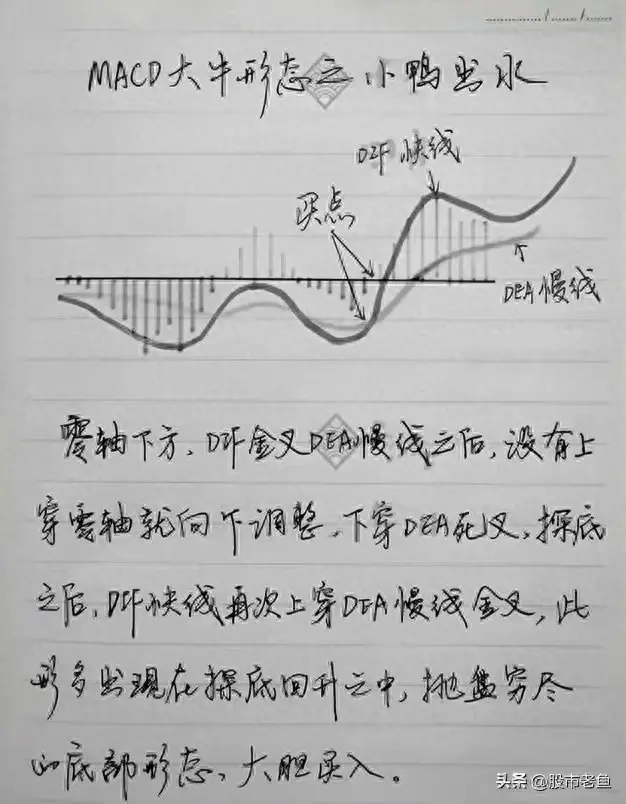 MACD大牛形态之小鸭出水
DIF快线
买点
DEA慢线
零轴下方，DIF金叉DEA慢线之后，没有上
穿零轴就向下调整，下穿DEA死叉，探底
之后，DIF快线再次上穿DEA慢线金叉，此
形多出现在探底回升之中，抛盘穷尽
的底部形态，大胆买入。
头条 @股市老鱼